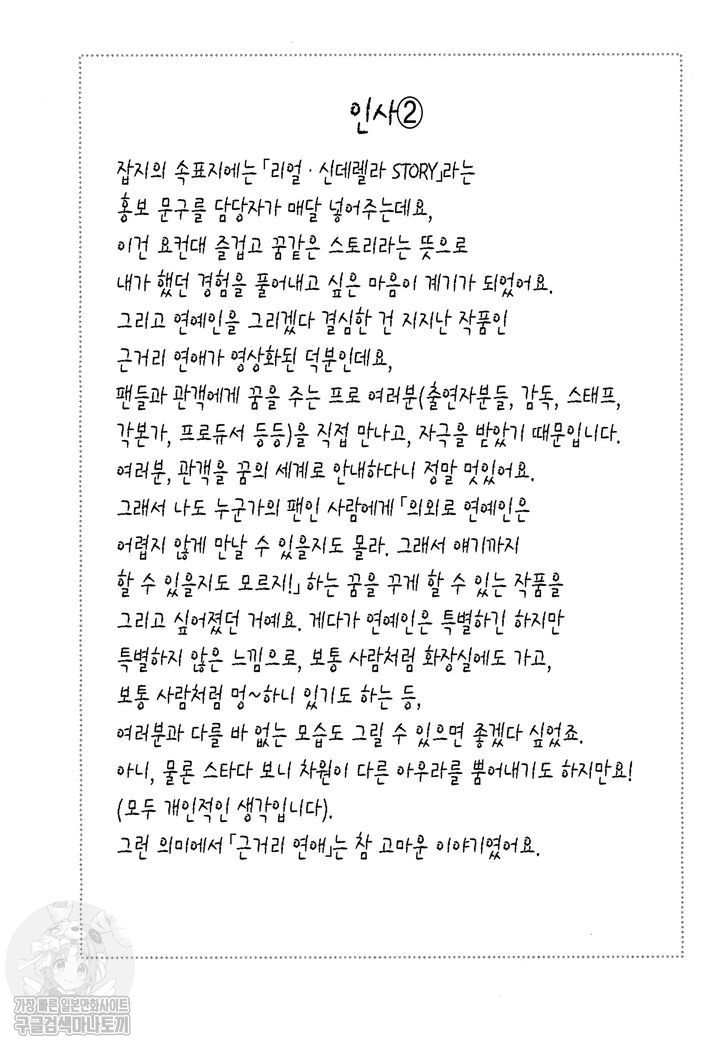 인사②
잡지의 속표지에는 「리얼·신데렐라 STORY」라는
홍보 문구를 담당자가 매달 넣어주는데요,
이건 요컨대 즐겁고 꿈같은 스토리라는 뜻으로
내가 했던 경험을 풀어내고 싶은 마음이 계기가 되었어요.
그리고 연예인을 그리겠다 결심한 건 지지난 작품인
근거리 연애가 영상화된 덕분인데요,
팬들과 관객에게 꿈을 주는 프로 여러분(출연자분들, 감독, 스태프,
각본가, 프로듀서 등등)을 직접 만나고, 자극을 받았기 때문입니다.
여러분, 관객을 꿈의 세계로 안내하다니 정말 멋있어요.
그래서 나도 누군가의 팬인 사람에게 「의외로 연예인은
어렵지 않게 만날 수 있을지도 몰라. 그래서 얘기까지
할 수 있을지도 모르지!」 하는 꿈을 꾸게 할 수 있는 작품을
그리고 싶어졌던 거예요. 게다가 연예인은 특별하긴 하지만
특별하지 않은 느낌으로, 보통 사람처럼 화장실에도 가고,
보통 사람처럼 멍~하니 있기도 하는 등,
여러분과 다를 바 없는 모습도 그릴 수 있으면 좋겠다 싶었죠.
아니, 물론 스타다 보니 차원이 다른 아우라를 뿜어내기도 하지만요!
(모두 개인적인 생각입니다).
그런 의미에서 「근거리 연애」는 참 고마운 이야기였어요.
가장 빠른 일본만화사이트
구글검색마나토끼